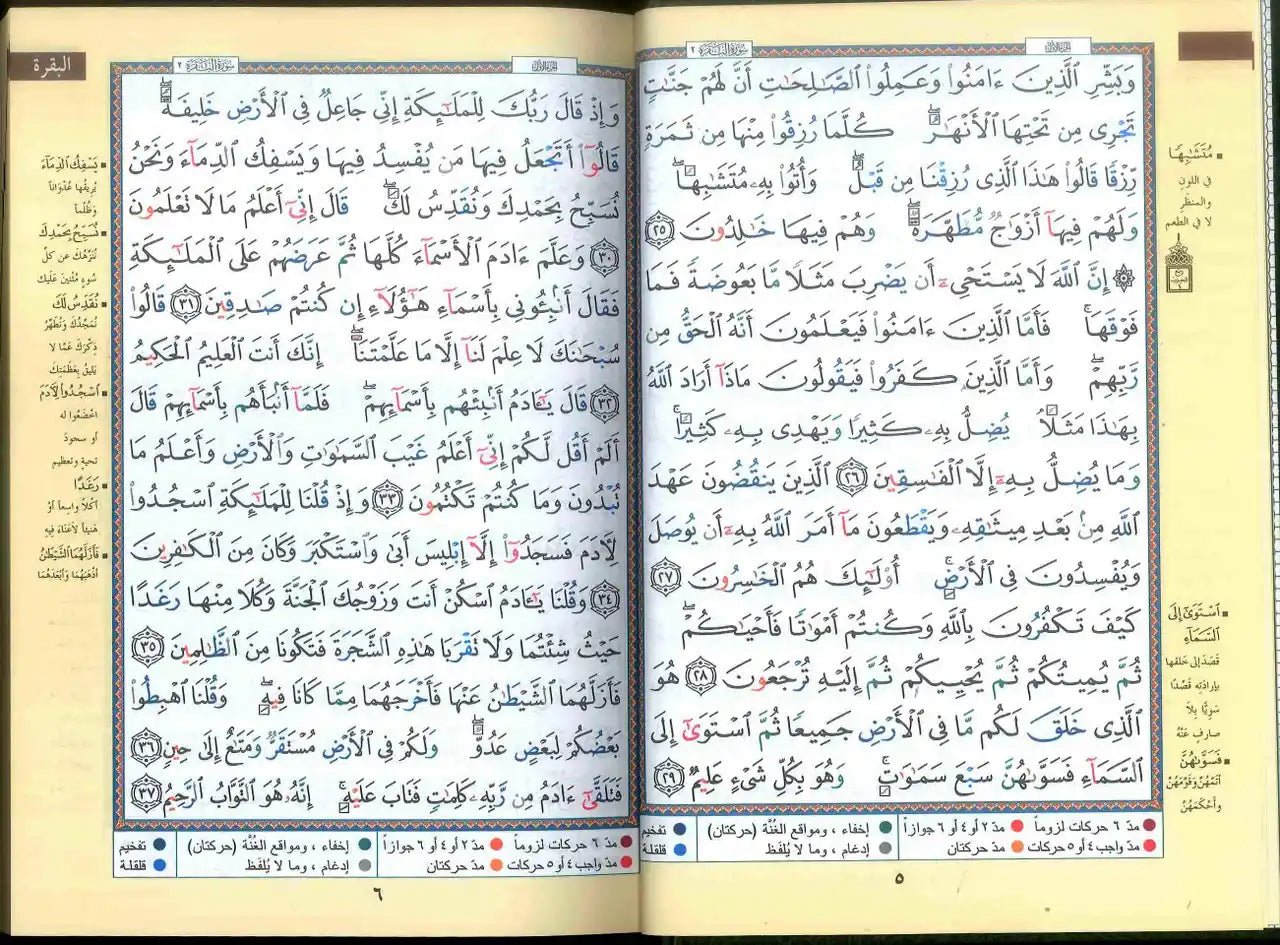 سورة البقرة ٢
الجزء الأول
وَبَشِّرِ ٱلَّذِينَ ءَامَنُوا۟ وَعَمِلُوا۟ ٱلصَّٰلِحَٰتِ أَنَّ لَهُمْ جَنَّٰتٍ
تَجْرِى مِن تَحْتِهَا ٱلْأَنْهَٰرُ ۖ كُلَّمَا رُزِقُوا۟ مِنْهَا مِن ثَمَرَةٍ
رِّزْقًا قَالُوا۟ هَٰذَا ٱلَّذِى رُزِقْنَا مِن قَبْلُ ۖ وَأُتُوا۟ بِهِۦ مُتَشَٰبِهًا ۖ
وَلَهُمْ فِيهَآ أَزْوَٰجٌ مُّطَهَّرَةٌ ۖ وَهُمْ فِيهَا خَٰلِدُونَ ٢٥
۞ إِنَّ ٱللَّهَ لَا يَسْتَحْىِۦٓ أَن يَضْرِبَ مَثَلًا مَّا بَعُوضَةً فَمَا
فَوْقَهَا ۚ فَأَمَّا ٱلَّذِينَ ءَامَنُوا۟ فَيَعْلَمُونَ أَنَّهُ ٱلْحَقُّ مِن
رَّبِّهِمْ ۖ وَأَمَّا ٱلَّذِينَ كَفَرُوا۟ فَيَقُولُونَ مَاذَآ أَرَادَ ٱللَّهُ
بِهَٰذَا مَثَلًا ۘ يُضِلُّ بِهِۦ كَثِيرًا وَيَهْدِى بِهِۦ كَثِيرًا ۚ
وَمَا يُضِلُّ بِهِۦٓ إِلَّا ٱلْفَٰسِقِينَ ٢٦ ٱلَّذِينَ يَنقُضُونَ عَهْدَ
ٱللَّهِ مِنۢ بَعْدِ مِيثَٰقِهِۦ وَيَقْطَعُونَ مَآ أَمَرَ ٱللَّهُ بِهِۦٓ أَن يُوصَلَ
وَيُفْسِدُونَ فِى ٱلْأَرْضِ ۚ أُو۟لَٰٓئِكَ هُمُ ٱلْخَٰسِرُونَ ٢٧
كَيْفَ تَكْفُرُونَ بِٱللَّهِ وَكُنتُمْ أَمْوَٰتًا فَأَحْيَٰكُمْ ۖ
ثُمَّ يُمِيتُكُمْ ثُمَّ يُحْيِيكُمْ ثُمَّ إِلَيْهِ تُرْجَعُونَ ٢٨ هُوَ
ٱلَّذِى خَلَقَ لَكُم مَّا فِى ٱلْأَرْضِ جَمِيعًا ثُمَّ ٱسْتَوَىٰٓ إِلَى
ٱلسَّمَآءِ فَسَوَّىٰهُنَّ سَبْعَ سَمَٰوَٰتٍ ۚ وَهُوَ بِكُلِّ شَىْءٍ عَلِيمٌ ٢٩
مُتَشَٰبِهًا
في اللون
والمنظر
لا في الطعم
ٱسْتَوَىٰٓ إِلَى
ٱلسَّمَآءِ
قَصَدَ إلى خلقها
بإرادته قَصْدًا
سويًّا بلا
صارف عنه
فَسَوَّىٰهُنَّ
أتمهنّ وقوّمهنّ
وأحكمهنّ
مدّ ٦ حركات لزوماً
مدّ ٢ أو ٤ أو ٦ جوازاً
إخفاء ، ومواقع الغُنَّة (حركتان)
تفخيم
مدّ واجب ٤ أو ٥ حركات
مدّ حركتان
إدغام ، وما لا يُلفَظ
قلقلة
٥
البقرة
سورة البقرة ٢
الجزء الأول
وَإِذْ قَالَ رَبُّكَ لِلْمَلَٰٓئِكَةِ إِنِّى جَاعِلٌ فِى ٱلْأَرْضِ خَلِيفَةً ۖ
قَالُوٓا۟ أَتَجْعَلُ فِيهَا مَن يُفْسِدُ فِيهَا وَيَسْفِكُ ٱلدِّمَآءَ وَنَحْنُ
نُسَبِّحُ بِحَمْدِكَ وَنُقَدِّسُ لَكَ ۖ قَالَ إِنِّىٓ أَعْلَمُ مَا لَا تَعْلَمُونَ
٣٠ وَعَلَّمَ ءَادَمَ ٱلْأَسْمَآءَ كُلَّهَا ثُمَّ عَرَضَهُمْ عَلَى ٱلْمَلَٰٓئِكَةِ
فَقَالَ أَنۢبِـُٔونِى بِأَسْمَآءِ هَٰٓؤُلَآءِ إِن كُنتُمْ صَٰدِقِينَ ٣١ قَالُوا۟
سُبْحَٰنَكَ لَا عِلْمَ لَنَآ إِلَّا مَا عَلَّمْتَنَآ ۖ إِنَّكَ أَنتَ ٱلْعَلِيمُ ٱلْحَكِيمُ
٣٢ قَالَ يَٰٓـَٔادَمُ أَنۢبِئْهُم بِأَسْمَآئِهِمْ ۖ فَلَمَّآ أَنۢبَأَهُم بِأَسْمَآئِهِمْ قَالَ
أَلَمْ أَقُل لَّكُمْ إِنِّىٓ أَعْلَمُ غَيْبَ ٱلسَّمَٰوَٰتِ وَٱلْأَرْضِ وَأَعْلَمُ مَا
تُبْدُونَ وَمَا كُنتُمْ تَكْتُمُونَ ٣٣ وَإِذْ قُلْنَا لِلْمَلَٰٓئِكَةِ ٱسْجُدُوا۟
لِـَٔادَمَ فَسَجَدُوٓا۟ إِلَّآ إِبْلِيسَ أَبَىٰ وَٱسْتَكْبَرَ وَكَانَ مِنَ ٱلْكَٰفِرِينَ
٣٤ وَقُلْنَا يَٰٓـَٔادَمُ ٱسْكُنْ أَنتَ وَزَوْجُكَ ٱلْجَنَّةَ وَكُلَا مِنْهَا رَغَدًا
حَيْثُ شِئْتُمَا وَلَا تَقْرَبَا هَٰذِهِ ٱلشَّجَرَةَ فَتَكُونَا مِنَ ٱلظَّٰلِمِينَ ٣٥
فَأَزَلَّهُمَا ٱلشَّيْطَٰنُ عَنْهَا فَأَخْرَجَهُمَا مِمَّا كَانَا فِيهِ ۖ وَقُلْنَا ٱهْبِطُوا۟
بَعْضُكُمْ لِبَعْضٍ عَدُوٌّ ۖ وَلَكُمْ فِى ٱلْأَرْضِ مُسْتَقَرٌّ وَمَتَٰعٌ إِلَىٰ حِينٍ ٣٦
فَتَلَقَّىٰٓ ءَادَمُ مِن رَّبِّهِۦ كَلِمَٰتٍ فَتَابَ عَلَيْهِ ۚ إِنَّهُۥ هُوَ ٱلتَّوَّابُ ٱلرَّحِيمُ ٣٧
يَسْفِكُ ٱلدِّمَآءَ
يُريقُها عُدْوَاناً
وظُلماً
نُسَبِّحُ بِحَمْدِكَ
نُنَزِّهُكَ عن كلّ
سُوءٍ مُثْنينَ عَلَيك
نُقَدِّسُ لَكَ
نُمَجِّدُكَ وَنُطَهِّرُ
ذِكْرَكَ عَمَّا لا
يليقُ بعَظَمَتِكَ
ٱسْجُدُوا۟ لِـَٔادَمَ
اخْضَعُوا له
أو سجودَ
تحيةٍ وتعظيم
رَغَدًا
أكلاً واسعاً أوْ
هنيئاً لا عَنَاءَ فِيهِ
فَأَزَلَّهُمَا ٱلشَّيْطَٰنُ
أذْهَبَهُمَا وَأبْعَدَهُمَا
مدّ ٦ حركات لزوماً
مدّ ٢ أو ٤ أو ٦ جوازاً
إخفاء ، ومواقع الغُنَّة (حركتان)
تفخيم
مدّ واجب ٤ أو ٥ حركات
مدّ حركتان
إدغام ، وما لا يُلفَظ
قلقلة
٦